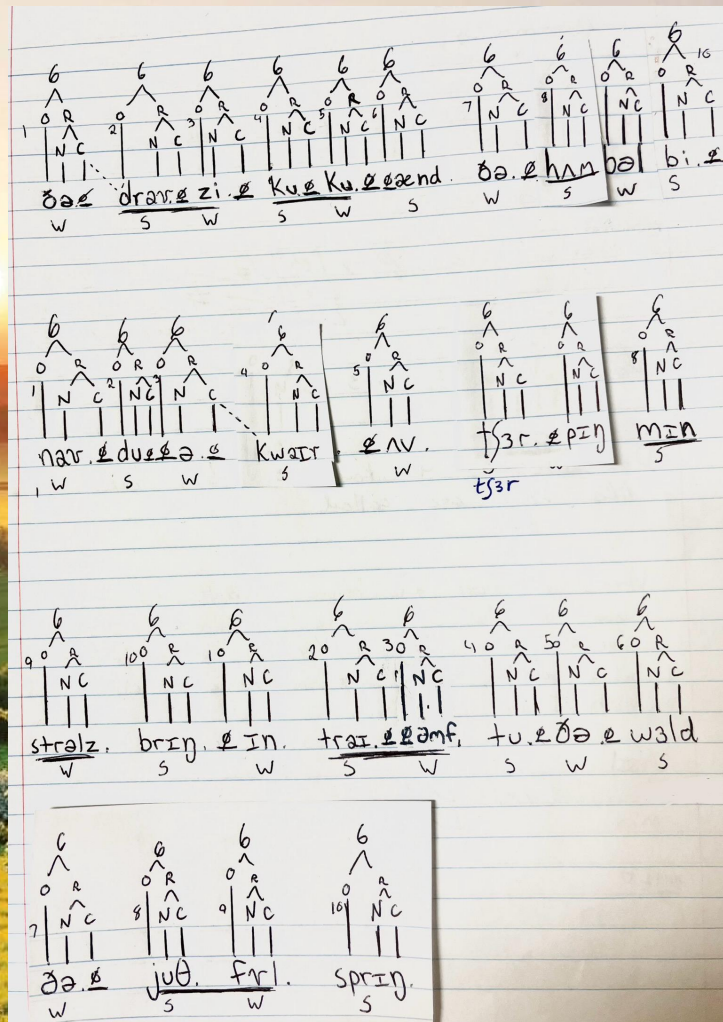 σ σ σ σ σ σ σ σ σ σ
1 O R 2 O R 3 O R 4 O R 5 O R 6 O R 7 O R 8 O R O R 10
N C N C N C N C N C N C N C N C N C N C
ðə.ø drav.ø zi.ø ku.ø ku.ø øænd. ðə.ø hʌm bəl bi.ø
W S W S W S W S W S
σ σ σ σ σ σ σ σ
1 O R 2 O R 3 O R 4 O R 5 O R O R O R 8 O R
N C N C N C N C N C N C N C N C
nav.ø duø øə.ø kwaɪr. ø ʌv. tʃɜr. øpɪŋ mɪn
W S W S W S
tʃɜr
σ σ σ σ σ σ σ σ
9 O R 10 O R 1 O R 2 O R 3 O R 4 O R 5 O R 6 O R
N C N C N C N C N C N C N C N C
strəlz. brɪŋ. ø ɪn. traɪ.ø øəmf. tu.ø ðə.ø wɜld
W S W S W S W S
σ σ σ σ
7 O R 8 O R 9 O R 10 O R
N C N C N C N C
ðə.ø juθ. fʊl. sprɪŋ.
W S W S